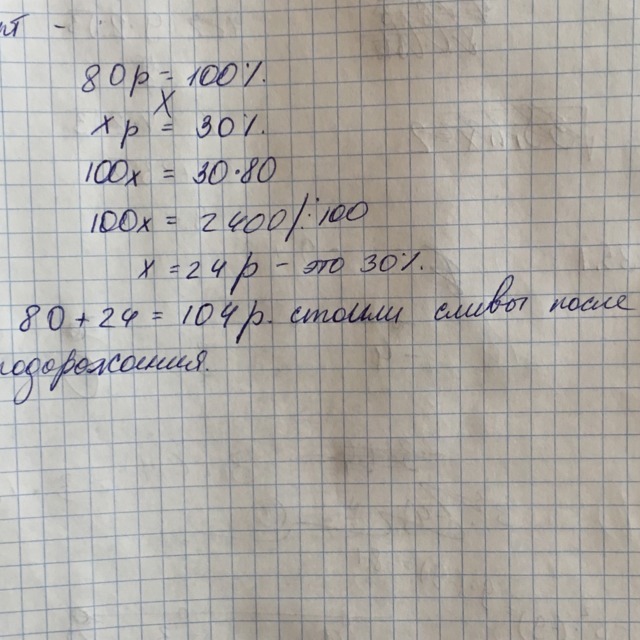 80р = 100%.
х
хр = 30%.
100х = 30·80
100х = 2400 /:100
х = 24р - это 30%.
80 + 24 = 104р. стоили сливы после
подорожания.